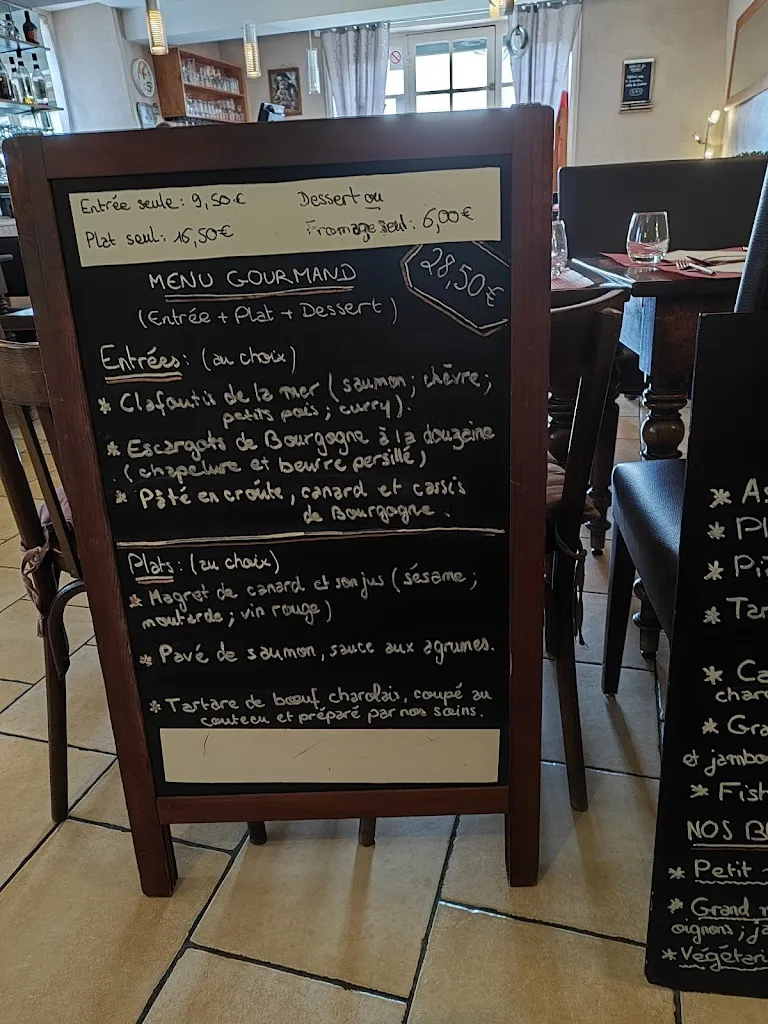 Entrée seule: 9,50€
Dessert ou
Plat seul: 16,50€
Fromage seul: 6,00€
MENU GOURMAND
28,50€
(Entrée + Plat + Dessert)
Entrées: (au choix)
* Clafoutis de la mer (saumon; chèvre;
petits pois; curry).
* Escargots de Bourgogne à la douzaine
(chapelure et beurre persillé)
* Pâté en croûte, canard et cassis
de Bourgogne.
Plats: (au choix)
* Magret de canard et son jus (sésame;
moutarde; vin rouge)
* Pavé de saumon, sauce aux agrumes.
* Tartare de bœuf charolais, coupé au
couteau et préparé par nos soins.
* As
* Pl
* Tar
* Ca
char
* Gra
et jambo
* Fish
NOS B
* Petit
* Grand
oignons; ja
* Végétari